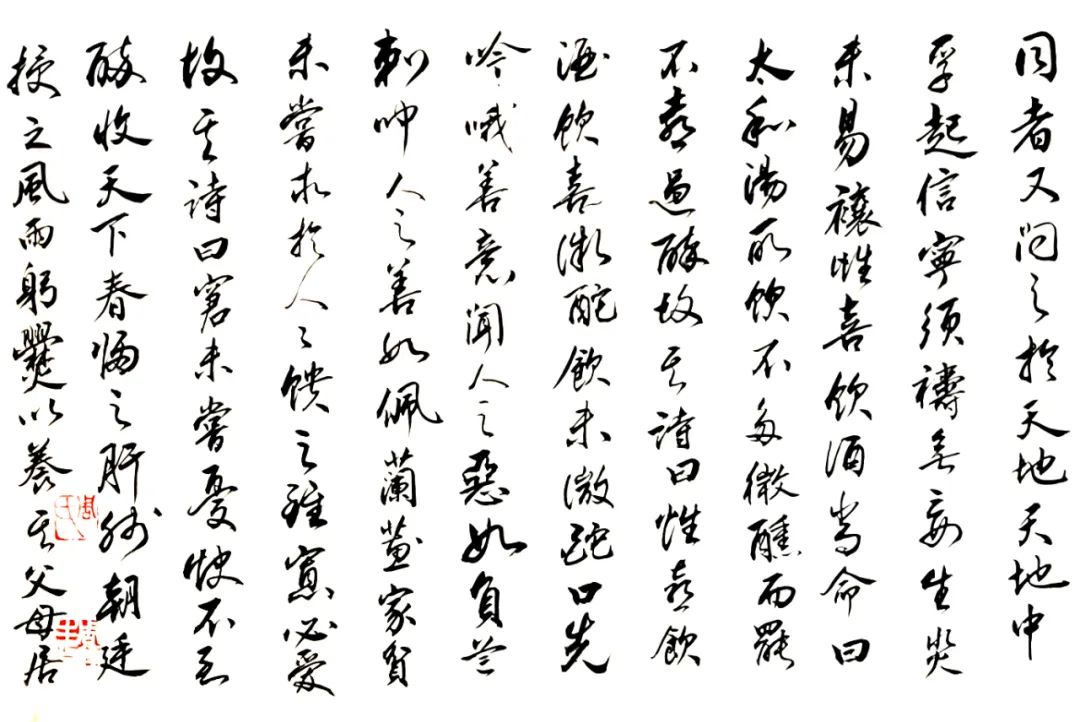 同者又问之於天地天地中
孚起信寧须禱無妄生災
未易禳性喜饮酒尝命曰
太和湯所饮不多微醺而罷
不喜過醉故其詩曰性喜飲
酒饮喜微酡飲未微酡口先
吟哦善意聞人之惡如負芒
刺呻人之善如佩蘭蕙家貧
未嘗求於人人饋之雖寡必受
故其詩曰窘未嘗憂飲不至
醉收天下春歸之肝肺朝廷
授之風雨躬爨以養其父母居